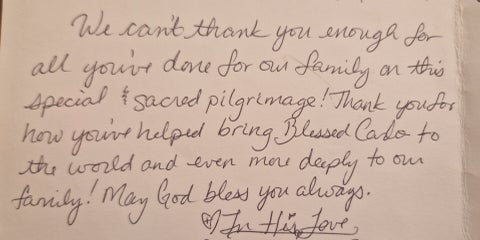 We can't thank you enough for
all you've done for our family on this
special & sacred pilgrimage! Thank you for
how you've helped bring Blessed Carlo to
the world and even more deeply to our
family! May God bless you always.
♡ In His Love,